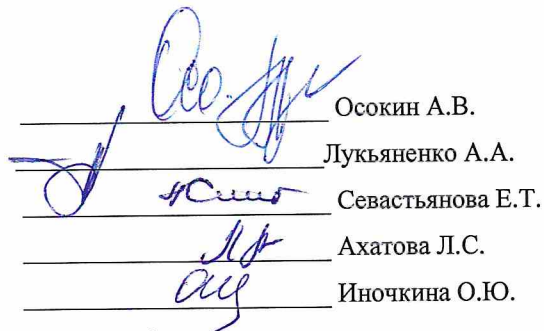 Осокин А.В.
Лукьяненко А.А.
Севастьянова Е.Т.
Ахатова Л.С.
Иночкина О.Ю.